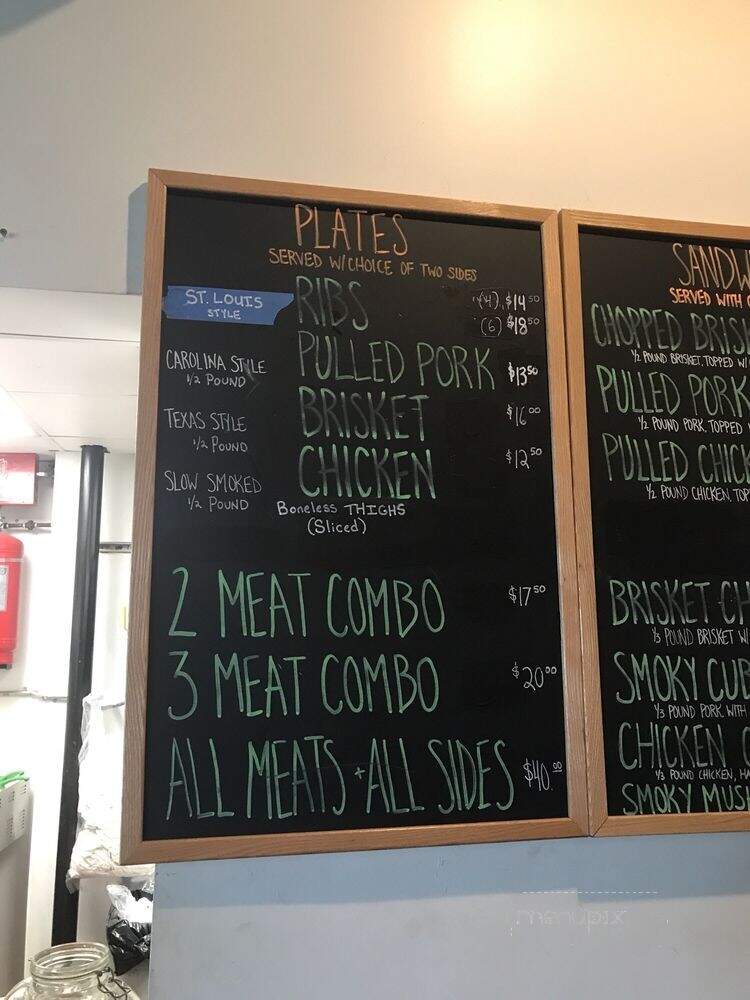 PLATES
SERVED W/CHOICE OF TWO SIDES
ST. LOUIS
STYLE
RIBS
(4) $14 50
(6) $18 50
CAROLINA STYLE
1/2 POUND
PULLED PORK $13 50
TEXAS STYLE
1/2 POUND
BRISKET $16 00
SLOW SMOKED
1/2 POUND
CHICKEN $12 50
Boneless THIGHS
(Sliced)
2 MEAT COMBO $17 50
3 MEAT COMBO $20 00
ALL MEATS + ALL SIDES $40. 00
SANDW
SERVED WITH
CHOPPED BRIS
1/2 POUND BRISKET, TOPPED W/
PULLED PORK
1/2 POUND PORK, TOPPED
PULLED CHICK
1/2 POUND CHICKEN, TOP
BRISKET CH
1/3 POUND BRISKET W/
SMOKY CUB
1/3 POUND PORK WITH
CHICKEN
1/3 POUND CHICKEN, HA
SMOKY MUSH
menupix